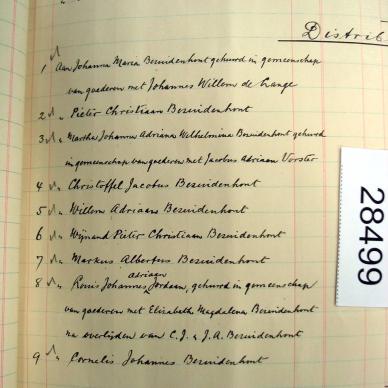 Distrib
1 " Aan Johanna Maria Bezuidenhout gehuwd in gemeenschap
van goederen met Johannes Willem de Lange
2 " Pieter Christiaan Bezuidenhout
3 " Martha Johanna Adriana Wilhelmina Bezuidenhout gehuwd
in gemeenschap van goederen met Jacobus Adriaan Vorster
4 " Christoffel Jacobus Bezuidenhout
5 " Willem Adriaan Bezuidenhout
6 " Wijnand Pieter Christiaan Bezuidenhout
7 " Markus Albertus Bezuidenhout
8 " Louis Johannes Adriaan Jordaan, gehuwd in gemeenschap
van goederen met Elizabeth Magdalena Bezuidenhout
na overlijden van C.J. & J.A. Bezuidenhout
9 " Cornelis Johannes Bezuidenhout
28499